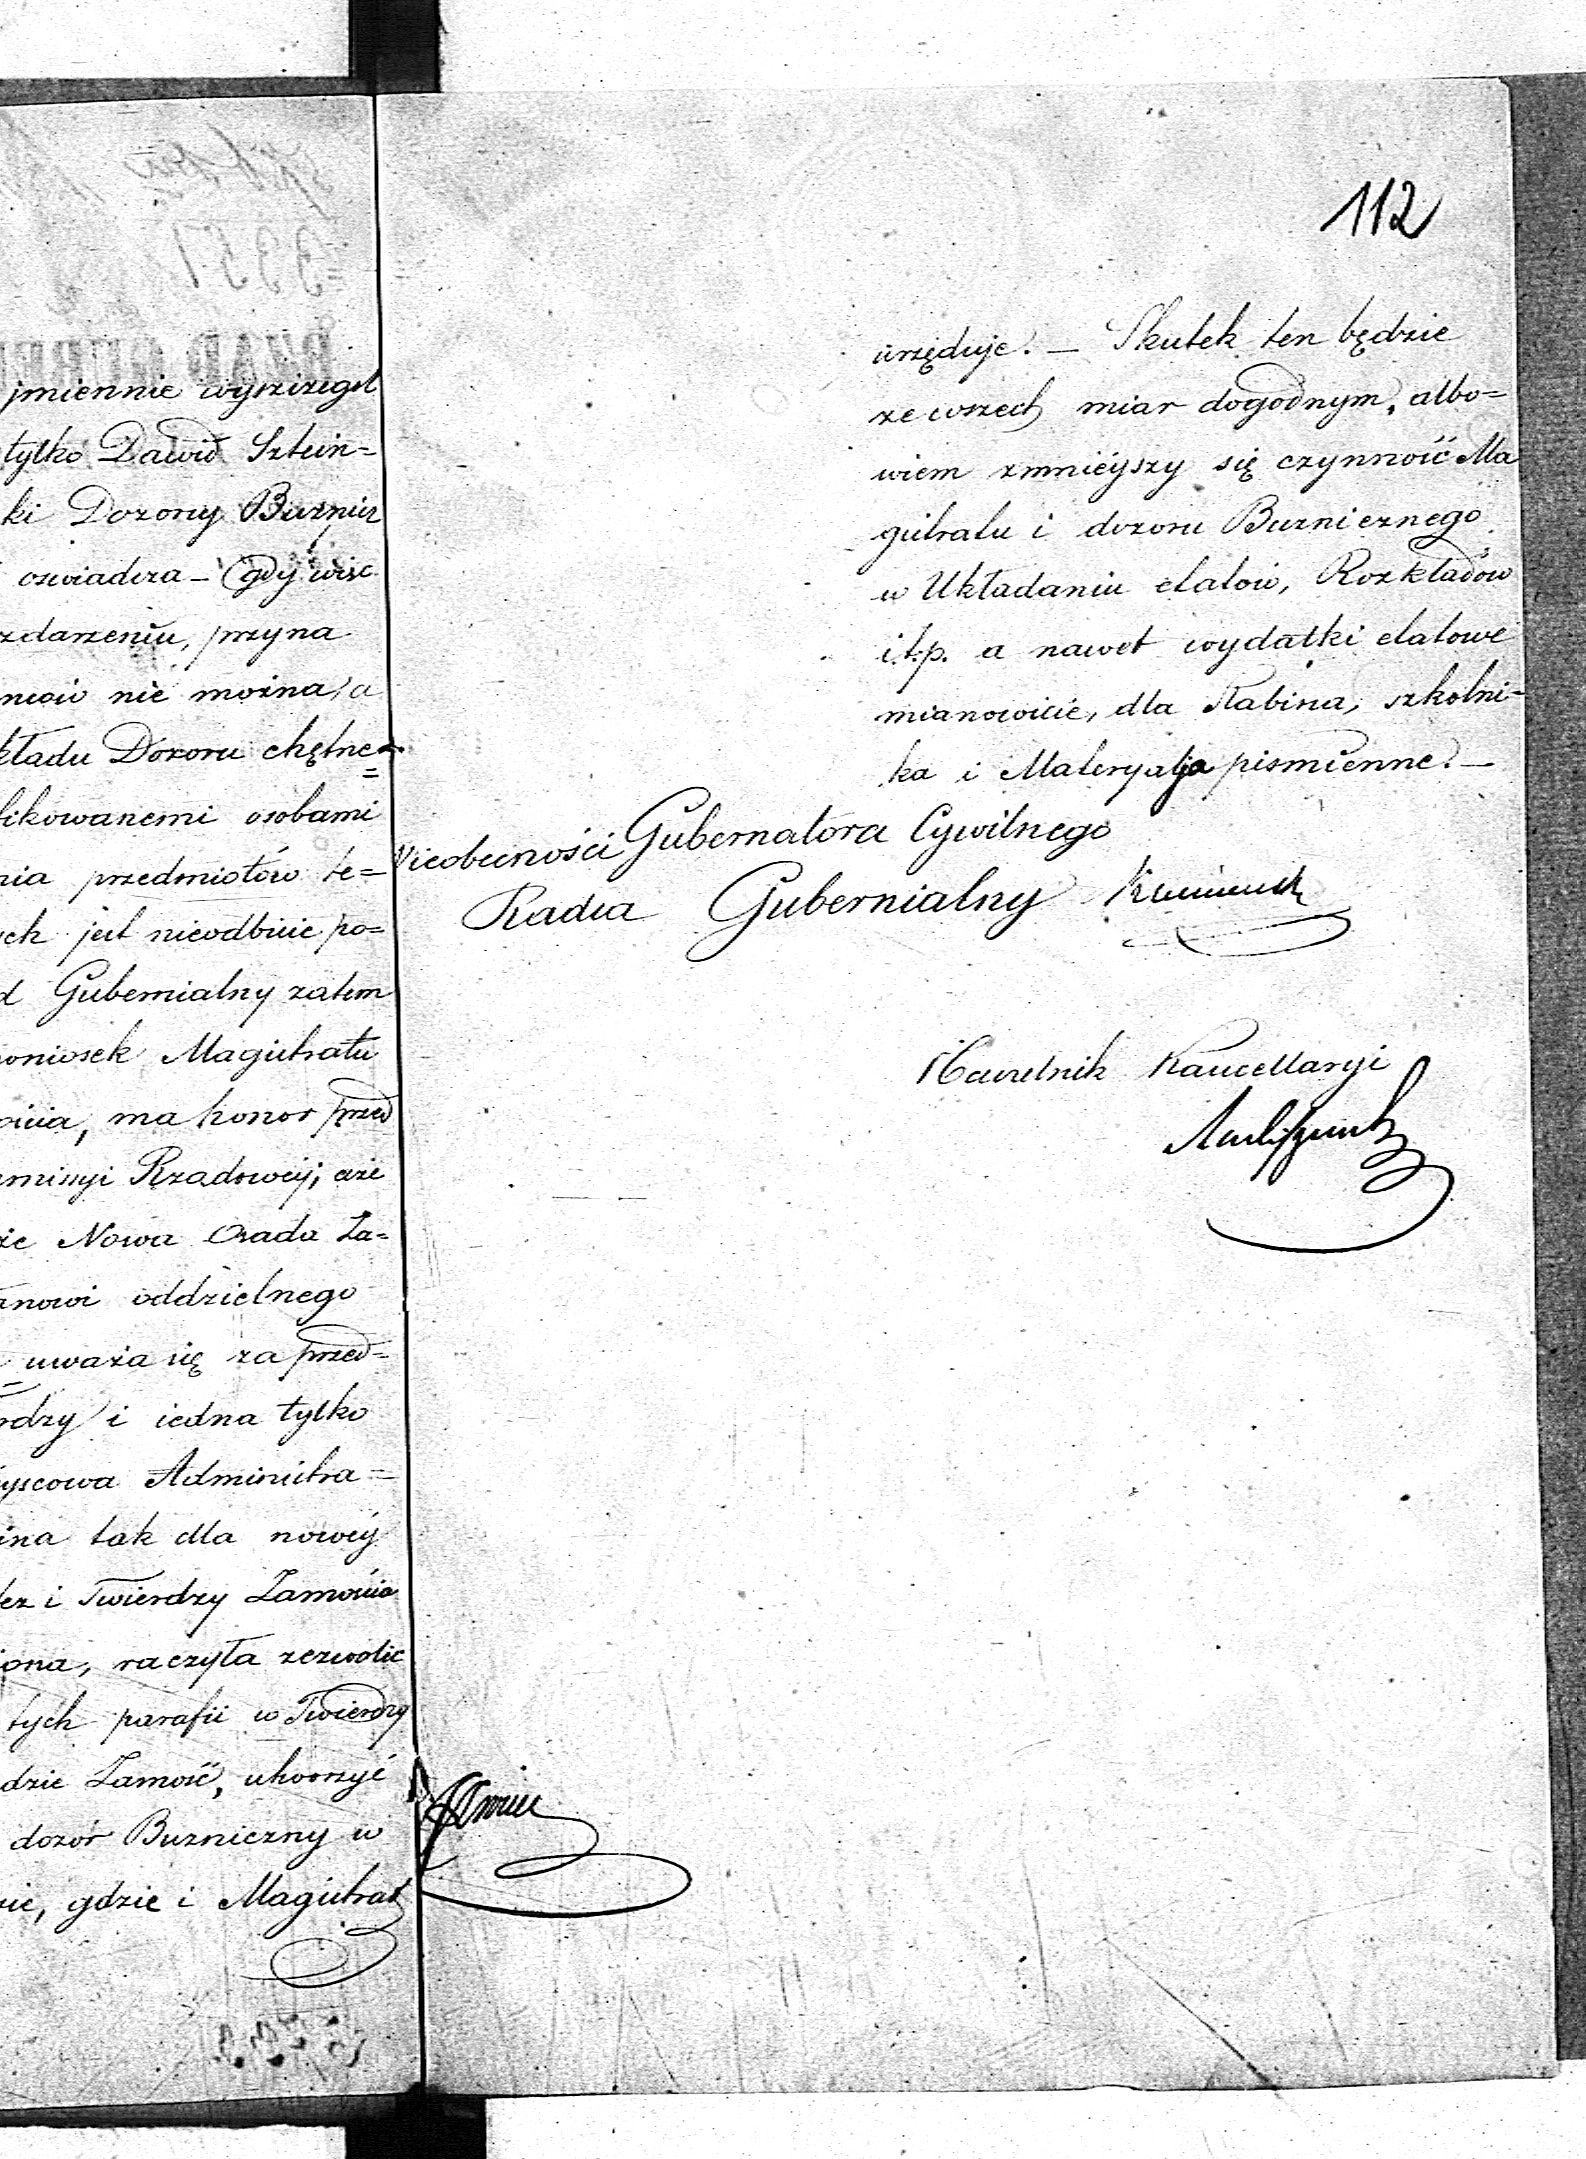 jmiennie wyszczegól
tylko Dawid Sztein=
ki Dozory Bużnicz
oswiadcza – Gdy więc
zdarzeniu, przyna
nie można, a
kładu Dozoru chętne
fikowanemi osobami
nia przedmiotów te=
ych jest nieodbicie po=
d Gubernialny zatem
niosek Magistratu
ma honor przed
mmissyi Rządowéj; aże
że Nowa Osada Za=
anowi oddzielnego
uważa się za przed=
rdzy i iedna tylko
yscowa Administra=
ina tak dla nowéy
lez i Twierdzy Zamościa
iona, raczyła zezwolic
tych parafii w Twierdzy
dzie Zamość, utworzyć
dozór Bużniczny w
nie, gdzie i Magistrat
112
urzęduje. – Skutek ten będzie
ze wszech miar dogodnym, albo=
wiem zmniéyszy się czynność Ma
gistratu i dozoru Buznicznego
w Układaniu etatów, Rozkładów
i.t.p. a nawet wydatki etatowe
mianowicie, dla Rabina, szkolni=
ka i Materyalja pismienne. –
Nieobecności Gubernatora Cywilnego
Radca Gubernialny
Naczelnik Kancellaryi